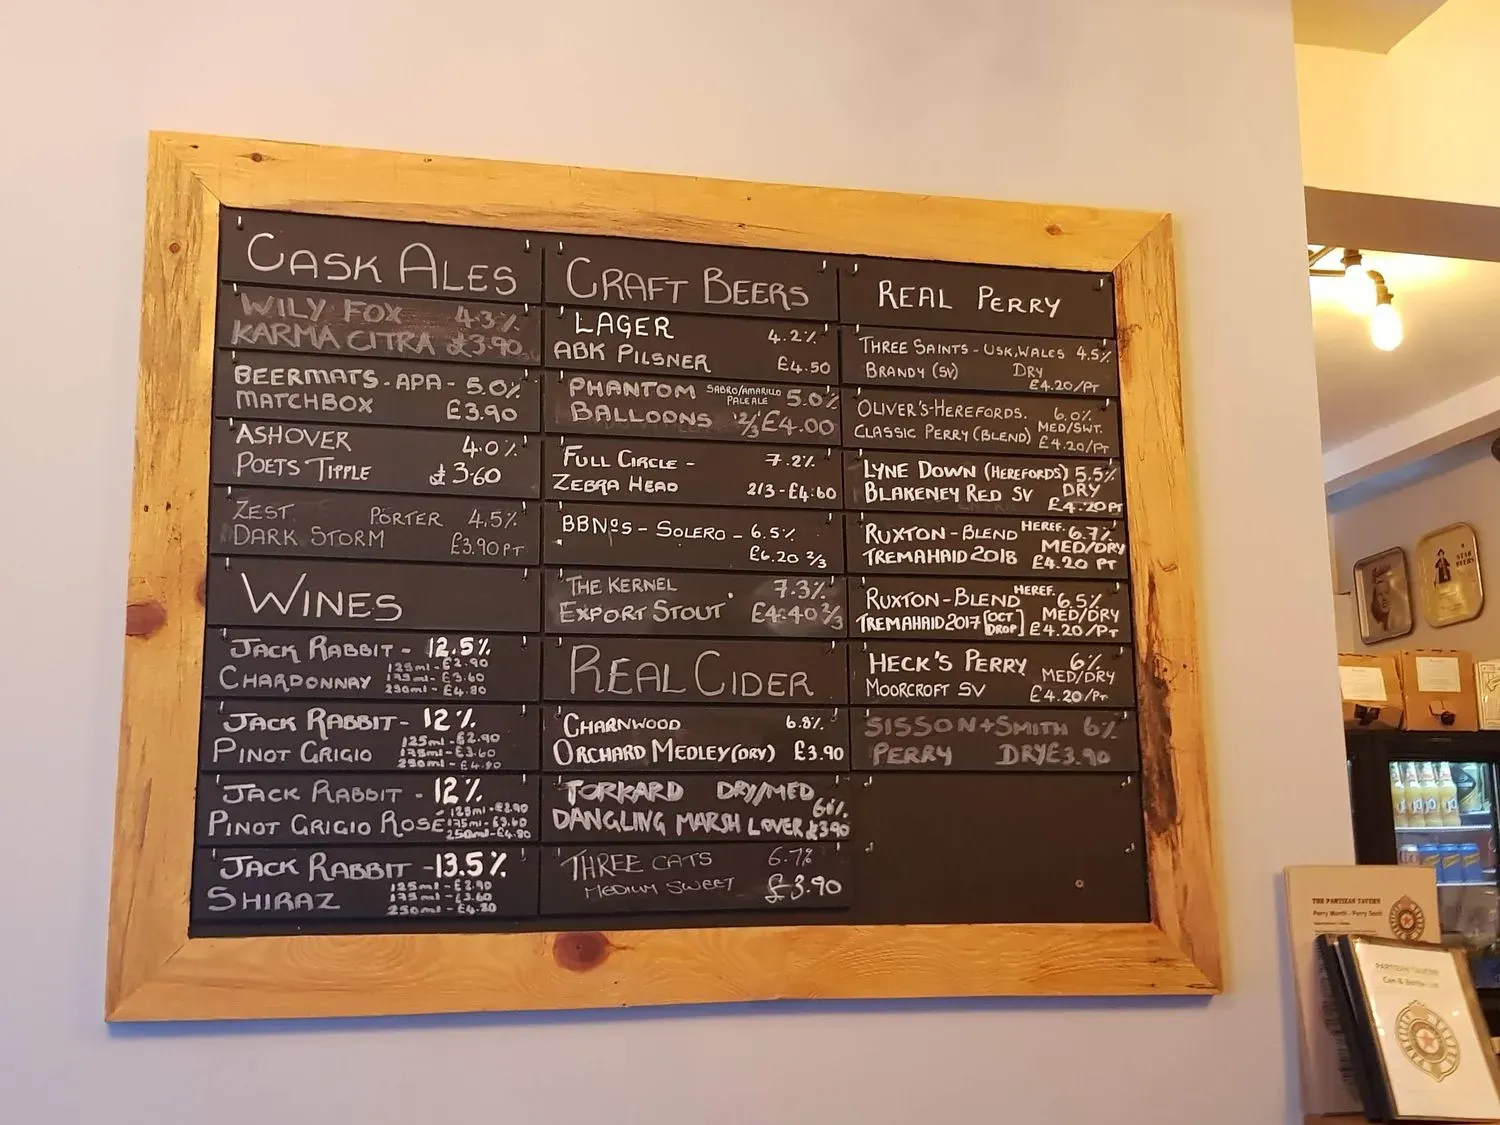 CASK ALES
WILY FOX 4.3%
KARMA CITRA £3.90
BEERMATS - APA - 5.0%
MATCHBOX £3.90
ASHOVER 4.0%
POETS TIPPLE £3.60
ZEST. PORTER 4.5%
DARK STORM £3.90PT
WINES
JACK RABBIT - 12.5%
CHARDONNAY 125ml - £2.90
175ml - £3.60
250ml - £4.80
JACK RABBIT - 12%
PINOT GRIGIO 125ml - £2.90
175ml - £3.60
250ml - £4.80
JACK RABBIT - 12%
PINOT GRIGIO ROSÉ 125ml - £2.90
175ml - £3.60
250ml - £4.80
JACK RABBIT - 13.5%
SHIRAZ 125ml - £2.90
175ml - £3.60
250ml - £4.80
CRAFT BEERS
LAGER 4.2%
ABK PILSNER £4.50
PHANTOM SABRO/AMARILLO 5.0%
PALE ALE
BALLOONS 2/3 £4.00
FULL CIRCLE - 7.2%
ZEBRA HEAD 2/3 - £4.60
BBNOS - SOLERO - 6.5%
£6.20 2/3
THE KERNEL 7.3%
EXPORT STOUT £4.40 2/3
REAL CIDER
CHARNWOOD 6.8%
ORCHARD MEDLEY (DRY) £3.90
TORKARD DRY/MED
DANGLING MARSH LOVER £3.90
THREE CATS 6.7%
MEDIUM SWEET £3.90
REAL PERRY
THREE SAINTS - USK, WALES 4.5%
BRANDY (SV) DRY
£4.20/PT
OLIVER'S - HEREFORDS. 6.0%
MED/SWT.
CLASSIC PERRY (BLEND) £4.20/PT
LYNE DOWN (HEREFORDS) 5.5%
BLAKENEY RED SV DRY
£4.20PT
RUXTON - BLEND HEREF. 6.7%
MED/DRY
TREMAHAID 2018 £4.20 PT
RUXTON - BLEND HEREF. 6.5%
MED/DRY
TREMAHAID 2017 [OCT DROP] £4.20/PT
HECK'S PERRY 6%
MED/DRY
MOORCROFT SV £4.20/PT
SISSON + SMITH 6%
PERRY DRY £3.90
THE PARTIZAN TAVERN
Perry Month - Perry
PARTIZAN TAVERN
Can & Bottle List